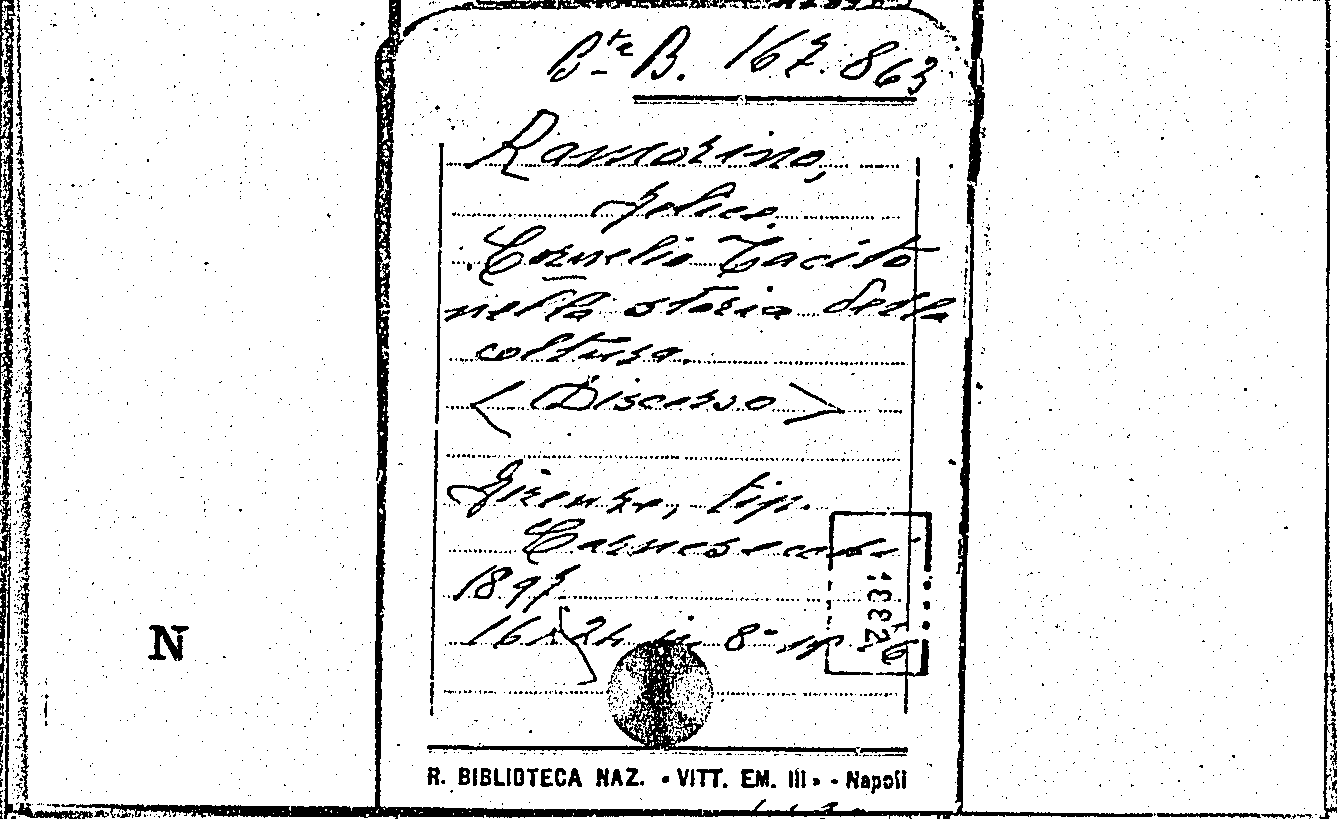 B.ta B. 167.863
Ramorino,
Felice.
Cornelio Tacito
nella storia della
coltura.
< Discorso >
Firenze, tip.
Carnesecchi
1897
16 24 in 8°
N
R. BIBLIOTECA NAZ. « VITT. EM. III » - Napoli